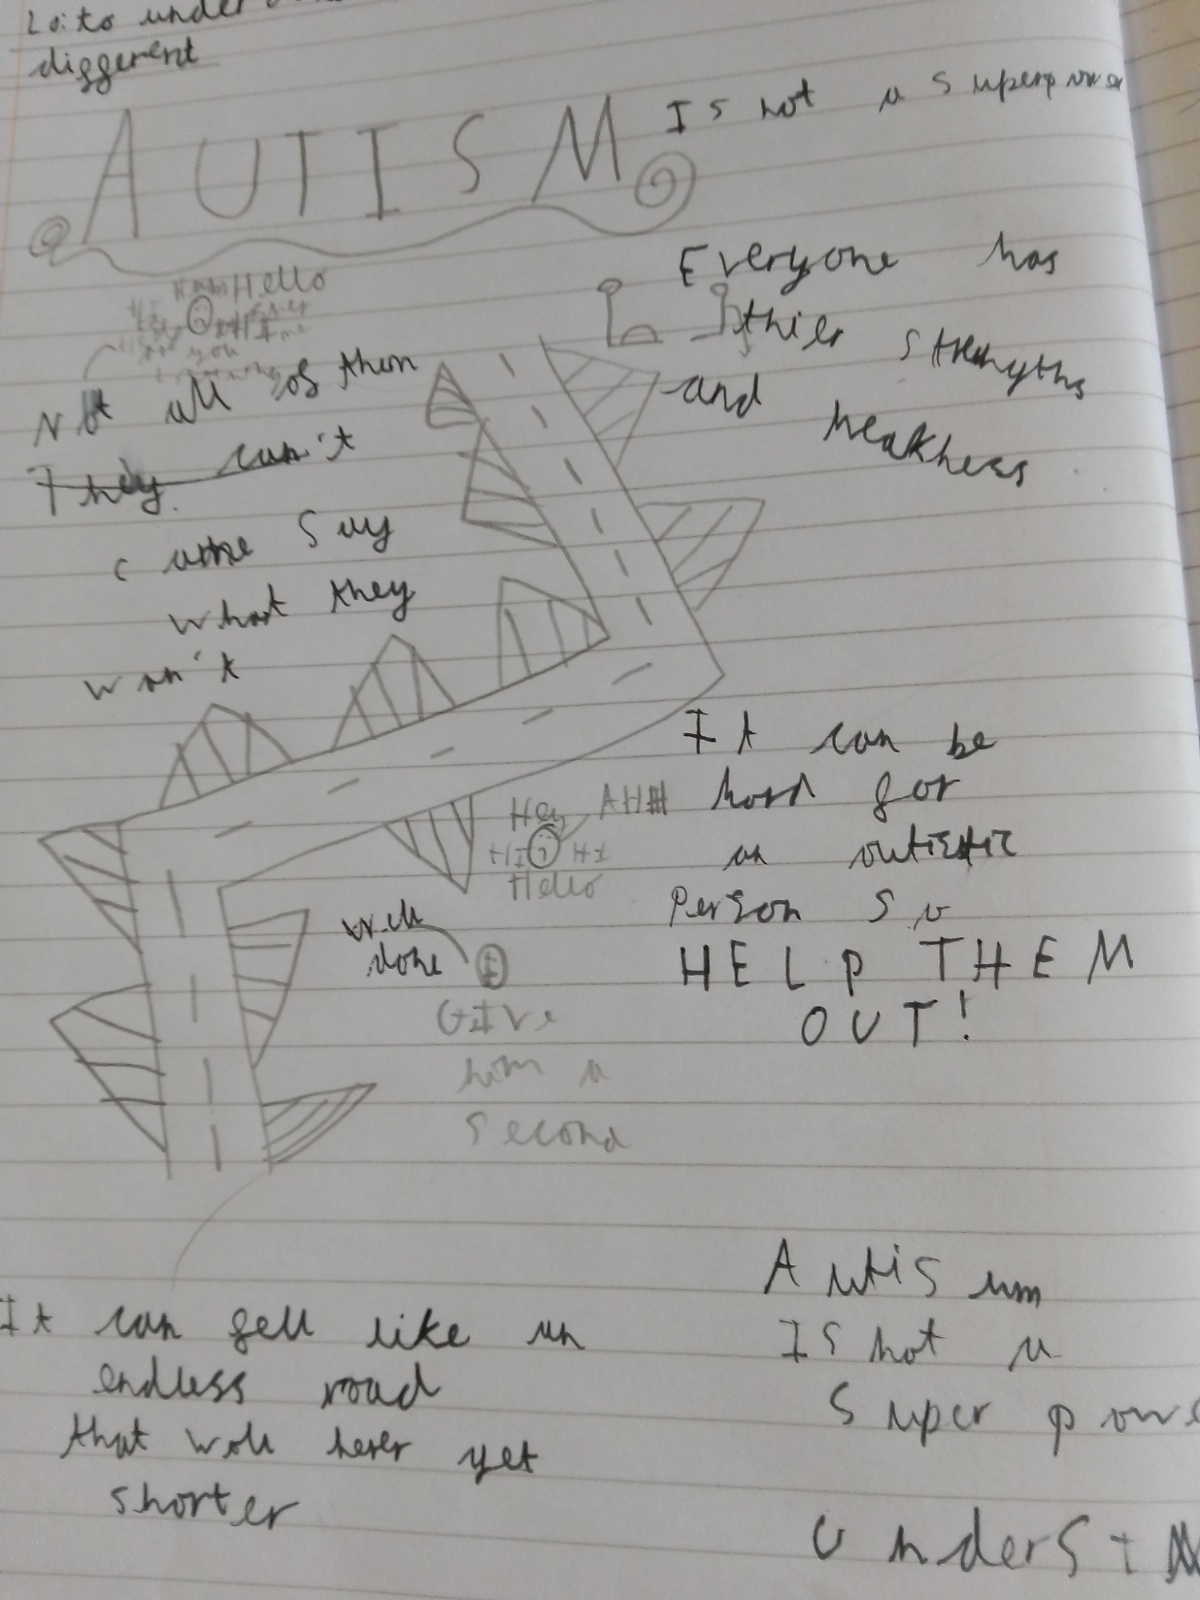 Lo: to under
diggerent
AUTISM
Is not a superpower
Hello
Everyone has
thier strenghts
and weakness
Not all of them
They can't
Say
what they
wan't
It can be
hard for
an autistic
Person So
HELP THEM
OUT!
Hey AHH
HI HI
Hello
well
done
GIVe
him a
second
It can fell like an
endless road
that woll never get
shorter
Autisum
IS not a
Super powe
Underst